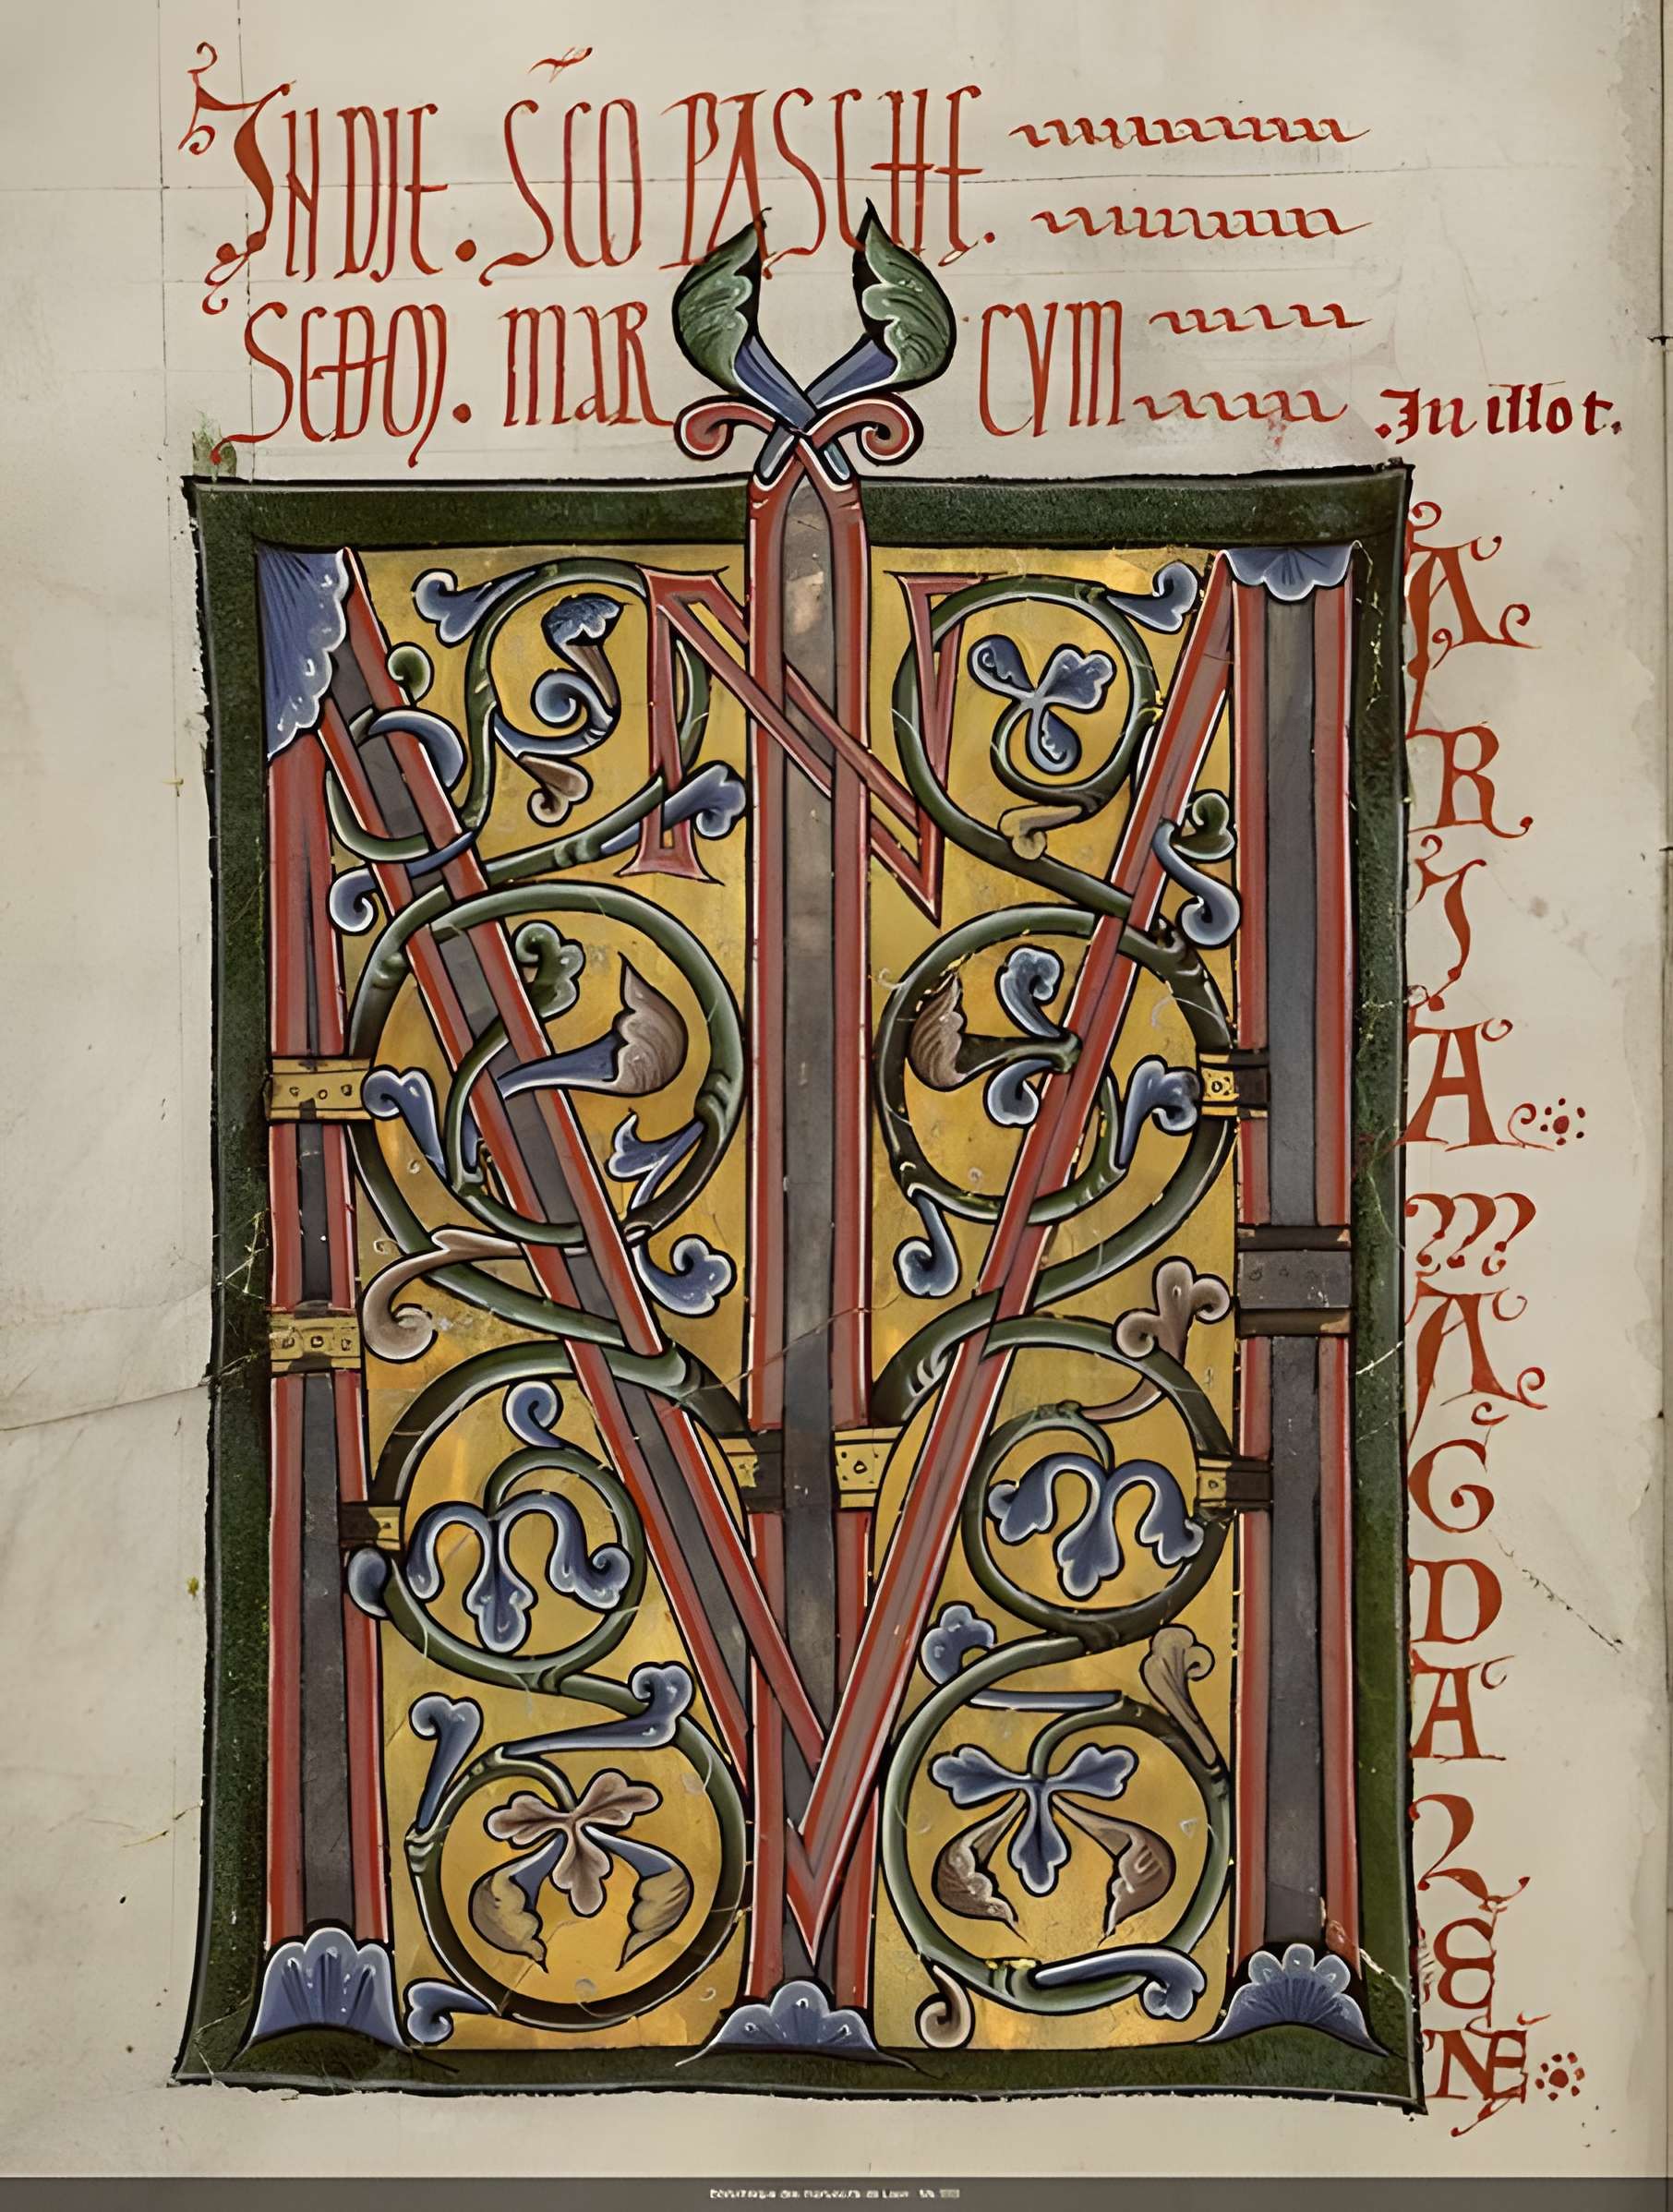 IN DIE. SCO PASCHE.
SEDM. MAR CVM
In illo t.
M
A
R
I
A
M
A
G
D
A
L
E
NE